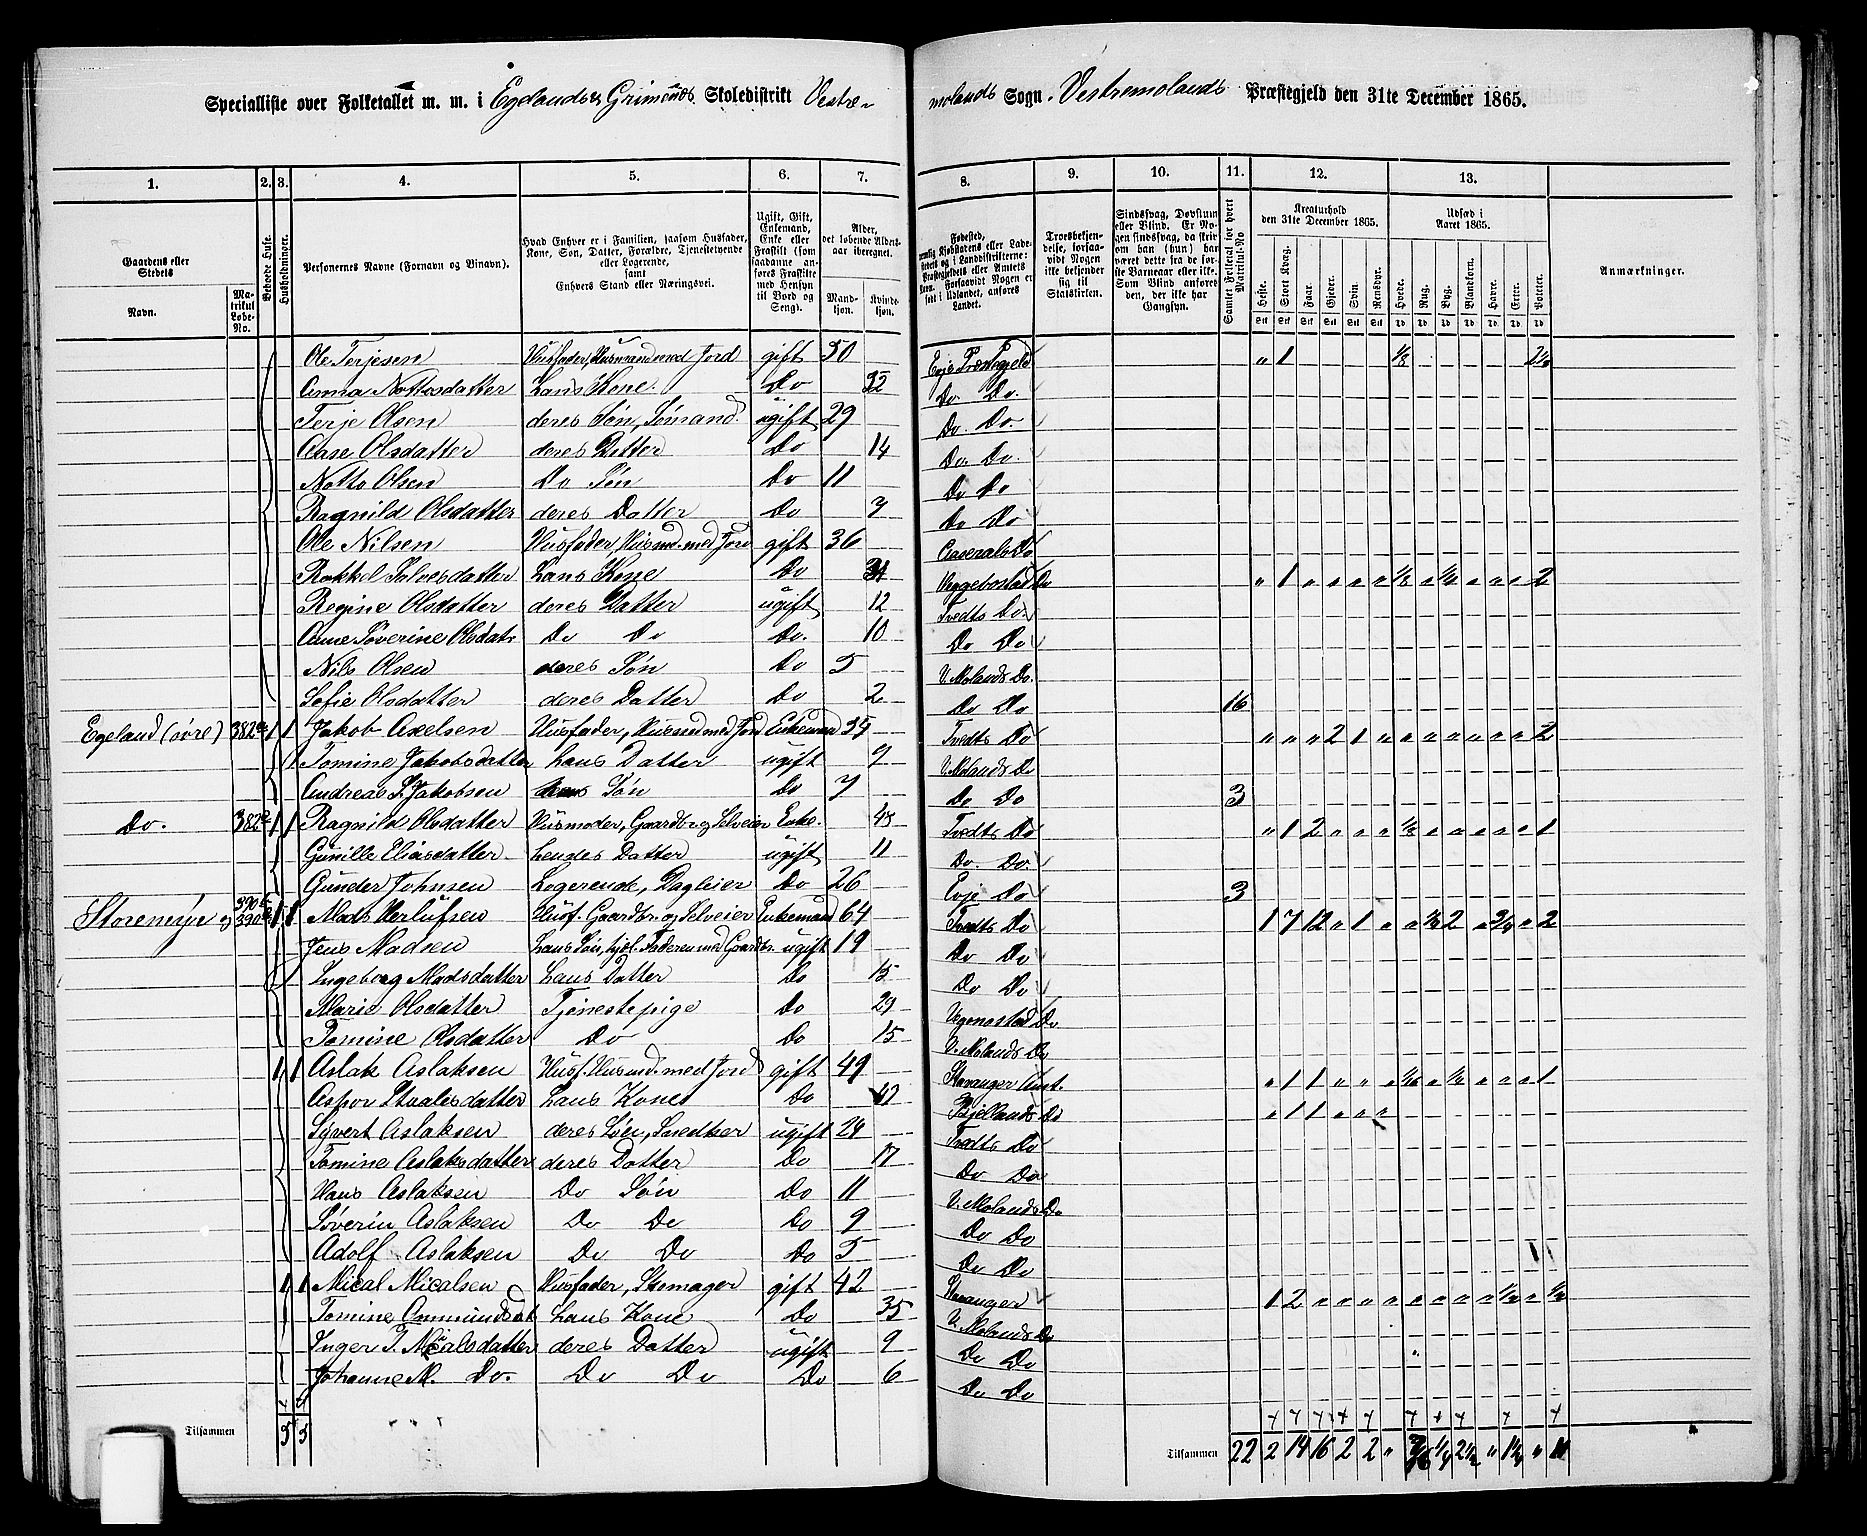 Specialliste over Folketallet m. m. i Egelands & Grimnæs Skoledistrikt Vestre-
molands Sogn. Vestremolands Præstegjeld den 31te December 1865.
1. 2. 3. 4. 5. 6. 7. 8. 9. 10. 11. 12. 13.
Gaardens eller Stedets
Navn.
Matrikul Løbe-No.
Beboede Huse.
Husholdninger.
Personernes Navne (Fornavn og Tilnavn).
Hvad Enhver er i Familien, saasom Husfader, Kone, Søn, Datter, Forældre, Tjenestetyende eller Logerende, samt Enhvers Stand eller Næringsvei.
Ugift, Gift, Enkemand, Enke eller Fraskilt (som saadanne anføres Fraskilte med Hensyn til Bord og Seng).
Alder, det løbende Aldersaar iberegnet.
Mandkjøn. Kvindekjøn.
Fødested,
Troesbekjendelse, forsaavidt Nogen ikke bekjender sig til Statskirken.
Sindssvag, Døvstum eller Blind. Er Nogen sindssvag, da skrives om han (hun) har været dette fra de første Barneaar eller ikke. Som Blind anføres den, der ikke har Gangsyn.
Samlet Folketal for hvert Matrikul-No
Kreaturhold den 31te December 1865.
Heste. Stort Kvæg. Faar. Gjeder. Svin. Rensdyr.
Udsæd i Aaret 1865.
Hvede. Rug. Byg. Blandkorn. Havre. Erter. Poteter.
Anmærkninger.
Ole Terjesen Husfader, Husmand med Jord gift 50 Evje Præstegjeld " 1 1/8 2 1/2
Anna Nottosdatter hans Kone. Do 52 Do. Do.
Terje Olsen deres Søn, Sømand. ugift 29 Do. Do.
Aase Olsdatter deres Datter Do 14 Do. Do.
Notto Olsen Do Søn Do 11 Do Do
Ragnild Olsdatter deres Datter Do 7 Do Do
Ole Nilsen Husfader, Husmd. med Jord gift 36 Aaserals Do
Rakkel Solvesdatter hans Kone Do 34 Do " 1 " " " " 1/8 " 1/4 " " " 2
Regine Olsdatter deres Datter ugift 12 Tvedts Do.
Anne Søverine Olsdatr Do Do Do. 10 Do Do
Nils Olsen deres Søn Do 5 V. Molands Do.
Sofie Olsdatter deres Datter Do 2 Do Do 16
Egeland (øvre) 382 1 1 Jakob Axelsen Husfader, Husmd med Jord Enkemand 55 Tvedts Do " " " 2 1 " " " " " " " 2
1 Tomine Jakobsdatter hans Datter ugift 9 V. Molands Do
Andreas S. Jakobsen hans Søn Do 7 Do Do 3
Do. 382 1 1 Ragnild Olsdatter Husmoder, Gaardbr. og Selveier Enke. 45 Tvedts Do " 1 2 " " " 1/8 " " " " " 1
Gunille Eliasdatter hendes Datter ugift 11 Do. Do.
Gunder Johnsen Logerende, Dagleier Do 26 Evje Do 3
Storemyr og 390 390 1 1 Mads Herlufsen Husf. Gaardbr. og Selveier Enkemand 64 Tvedts Do 1 7 12 " 1 " " 1/4 2 " 3/4 " 2
Jens Madsen hans Søn, hjel. Faderen med Gaardbr. ugift 19 Do Do
1 Ingeborg Madsdatter hans Datter Do 15 Do Do
Marie Olsdatter Tjenestepige Do 29 Do
Tomine Olsdatter Do Do 15 V. Molands Do
1 1 Aslak Aslaksen Husf. Husmd. med Jord gift 49 Stavanger Amt. " 1 1 " " " 1/16 " 1/4 " " " 1
Aspor Staalesdatter hans Kone Do Bjellands Do " 1 1 " " "
Syvert Aslaksen deres Søn, Snedker ugift 24 Tvedts Do
Tomine Aslaksdatter deres Datter Do 17 Do Do
Hans Aslaksen Do Søn Do 11 V. Molands Do
Søverin Aslaksen Do Do Do 9 Do Do
Adolf Aslaksen Do Do Do 5 Do Do
1 1 Mical Micalsen Husfader, Skomager gift 42 Stavanger 1 2 " " " " " " " " 1/2 " 1/2
Tomine Ommundsdat hans Kone Do 35 V. Molands Do
Inger T. Micalsdatter deres Datter ugift 9 Do Do
Johanne M. Do. Do Do Do 6 Do Do
Tilsammen 5 5
Tilsammen 22 2 14 16 2 2 " 1/4 2 1/2 " 1 1/4 " 11